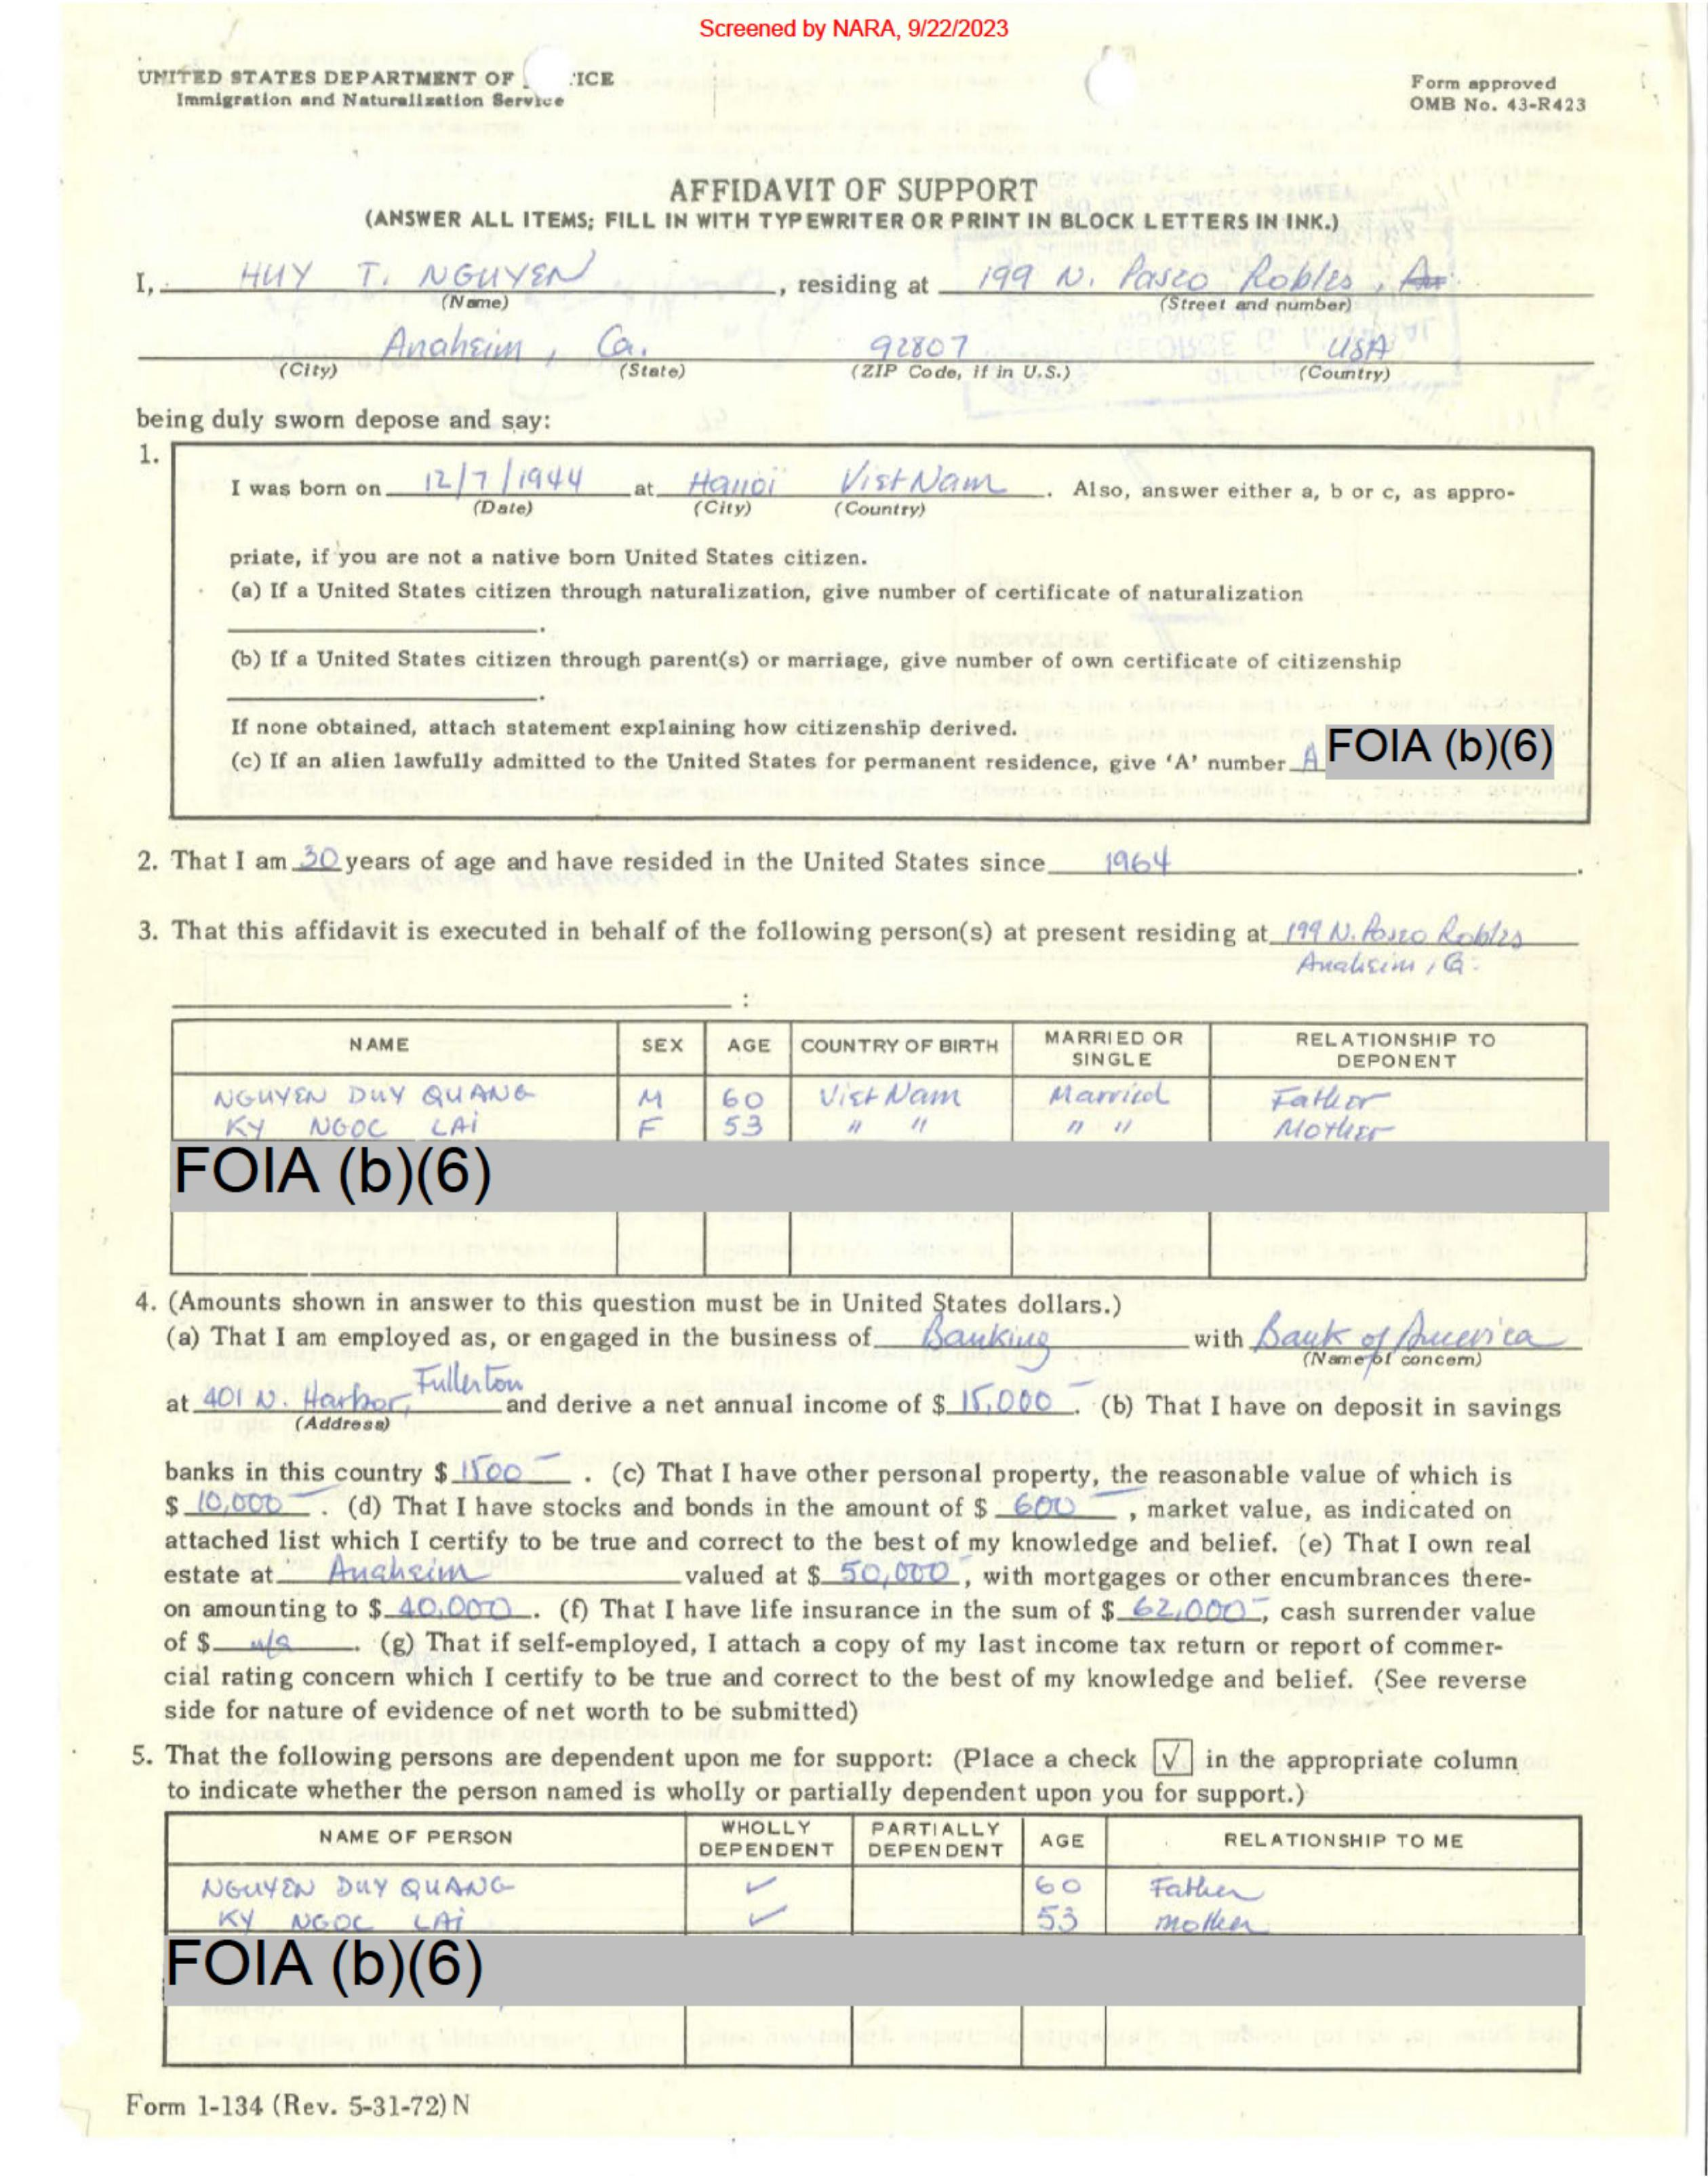 Screened by NARA, 9/22/2023
UNITED STATES DEPARTMENT OF ICE
Immigration and Naturalization Service
Form approved
OMB No. 43-R423
AFFIDAVIT OF SUPPORT
(ANSWER ALL ITEMS; FILL IN WITH TYPEWRITER OR PRINT IN BLOCK LETTERS IN INK.)
I, HUY T. NGUYEN, residing at 199 N. Paseo Robles,
(Name) (Street and number)
Anaheim, Ca. 92807 USA
(City) (State) (ZIP Code, if in U.S.) (Country)
being duly sworn depose and say:
1.
I was born on 12/7/1944 at Hanoi VietNam. Also, answer either a, b or c, as appro-
(Date) (City) (Country)
priate, if you are not a native born United States citizen.
(a) If a United States citizen through naturalization, give number of certificate of naturalization
.
(b) If a United States citizen through parent(s) or marriage, give number of own certificate of citizenship
.
If none obtained, attach statement explaining how citizenship derived.
(c) If an alien lawfully admitted to the United States for permanent residence, give 'A' number A FOIA (b)(6)
2. That I am 30 years of age and have resided in the United States since 1964.
3. That this affidavit is executed in behalf of the following person(s) at present residing at 199 N. Paseo Robles
Anaheim, Ca.
:
NAME SEX AGE COUNTRY OF BIRTH MARRIED OR SINGLE RELATIONSHIP TO DEPONENT
NGUYEN DUY QUANG M 60 VietNam Married Father
KY NGOC LAI F 53 " " " " Mother
FOIA (b)(6)
4. (Amounts shown in answer to this question must be in United States dollars.)
(a) That I am employed as, or engaged in the business of Banking with Bank of America
(Name of concern)
at 401 N. Harbor, Fullerton and derive a net annual income of $ 15,000-. (b) That I have on deposit in savings
(Address)
banks in this country $ 1500-. (c) That I have other personal property, the reasonable value of which is
$ 10,000-. (d) That I have stocks and bonds in the amount of $ 600-, market value, as indicated on
attached list which I certify to be true and correct to the best of my knowledge and belief. (e) That I own real
estate at Anaheim valued at $ 50,000-, with mortgages or other encumbrances there-
on amounting to $ 40,000. (f) That I have life insurance in the sum of $ 62,000-, cash surrender value
of $ n/a. (g) That if self-employed, I attach a copy of my last income tax return or report of commer-
cial rating concern which I certify to be true and correct to the best of my knowledge and belief. (See reverse
side for nature of evidence of net worth to be submitted)
5. That the following persons are dependent upon me for support: (Place a check √ in the appropriate column
to indicate whether the person named is wholly or partially dependent upon you for support.)
NAME OF PERSON WHOLLY DEPENDENT PARTIALLY DEPENDENT AGE RELATIONSHIP TO ME
NGUYEN DUY QUANG ✓ 60 Father
KY NGOC LAI ✓ 53 mother
FOIA (b)(6)
Form 1-134 (Rev. 5-31-72) N